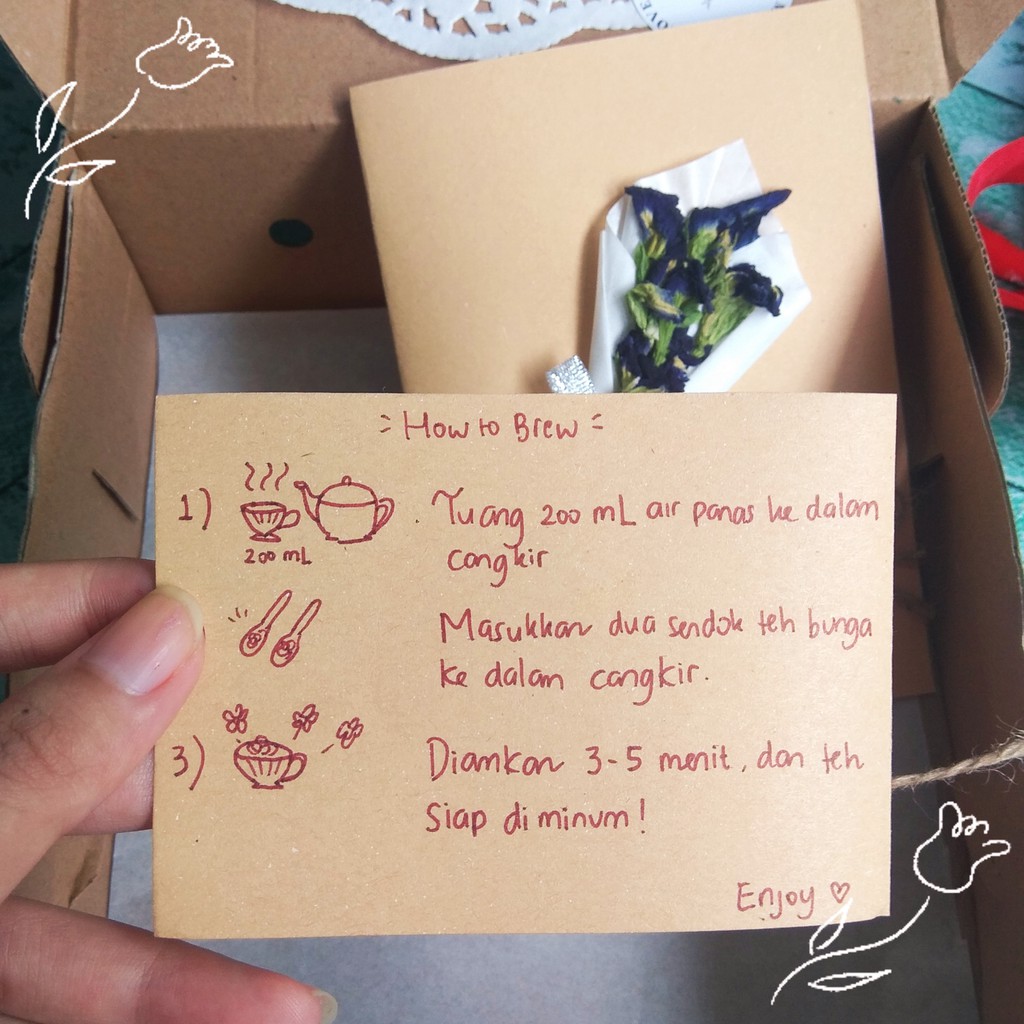 OVE
= How to Brew =
1) Tuang 200 mL air panas ke dalam
cangkir
200 mL
Masukkan dua sendok teh bunga
ke dalam cangkir.
3) Diamkan 3-5 menit, dan teh
siap diminum!
Enjoy ♡